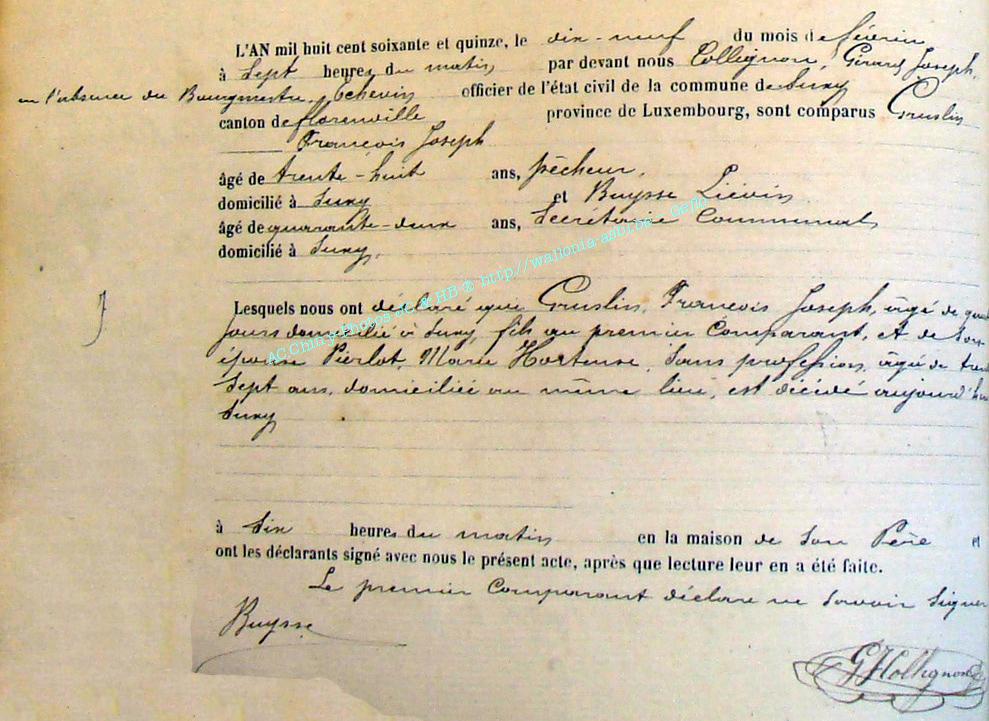 L'AN mil huit cent soixante et quinze, le dix-neuf du mois de février
à Sept heures du matin par devant nous Collignon, Girard Joseph,
en l'absence du Bourgmestre, Echevin officier de l'état civil de la commune de Suxy
canton de florenville province de Luxembourg, sont comparus Gruslin
François Joseph
âgé de trente-huit ans, pêcheur,
domicilié à Suxy et Buysse Liévin
âgé de quarante-deux ans, Secrétaire Communal
domicilié à Suxy,
AC Chiny Photos et & HB ® http//wallonia-asbl
Lesquels nous ont déclaré que Gruslin, François Joseph, âgé de
jours domicilié à Suxy, fils du premier Comparant, et de Son
épouse Pierlot, Marie Hortense, Sans profession, âgée de
Sept ans, domiciliée au même lieu, est décédé aujourd'hu
Suxy
à Six heures du matin en la maison de Son Père et
ont les déclarants signé avec nous le présent acte, après que lecture leur en a été faite.
Le premier Comparant déclare ne Savoir Signer
Buysse
GJCollignon